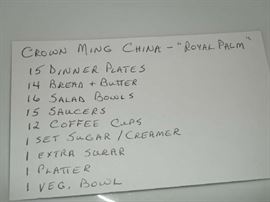 CROWN MING CHINA - "ROYAL PALM"
15 DINNER PLATES
14 BREAD + BUTTER
16 SALAD BOWLS
15 SAUCERS
12 COFFEE CUPS
1 SET SUGAR/CREAMER
1 EXTRA SUGAR
1 PLATTER
1 VEG. BOWL